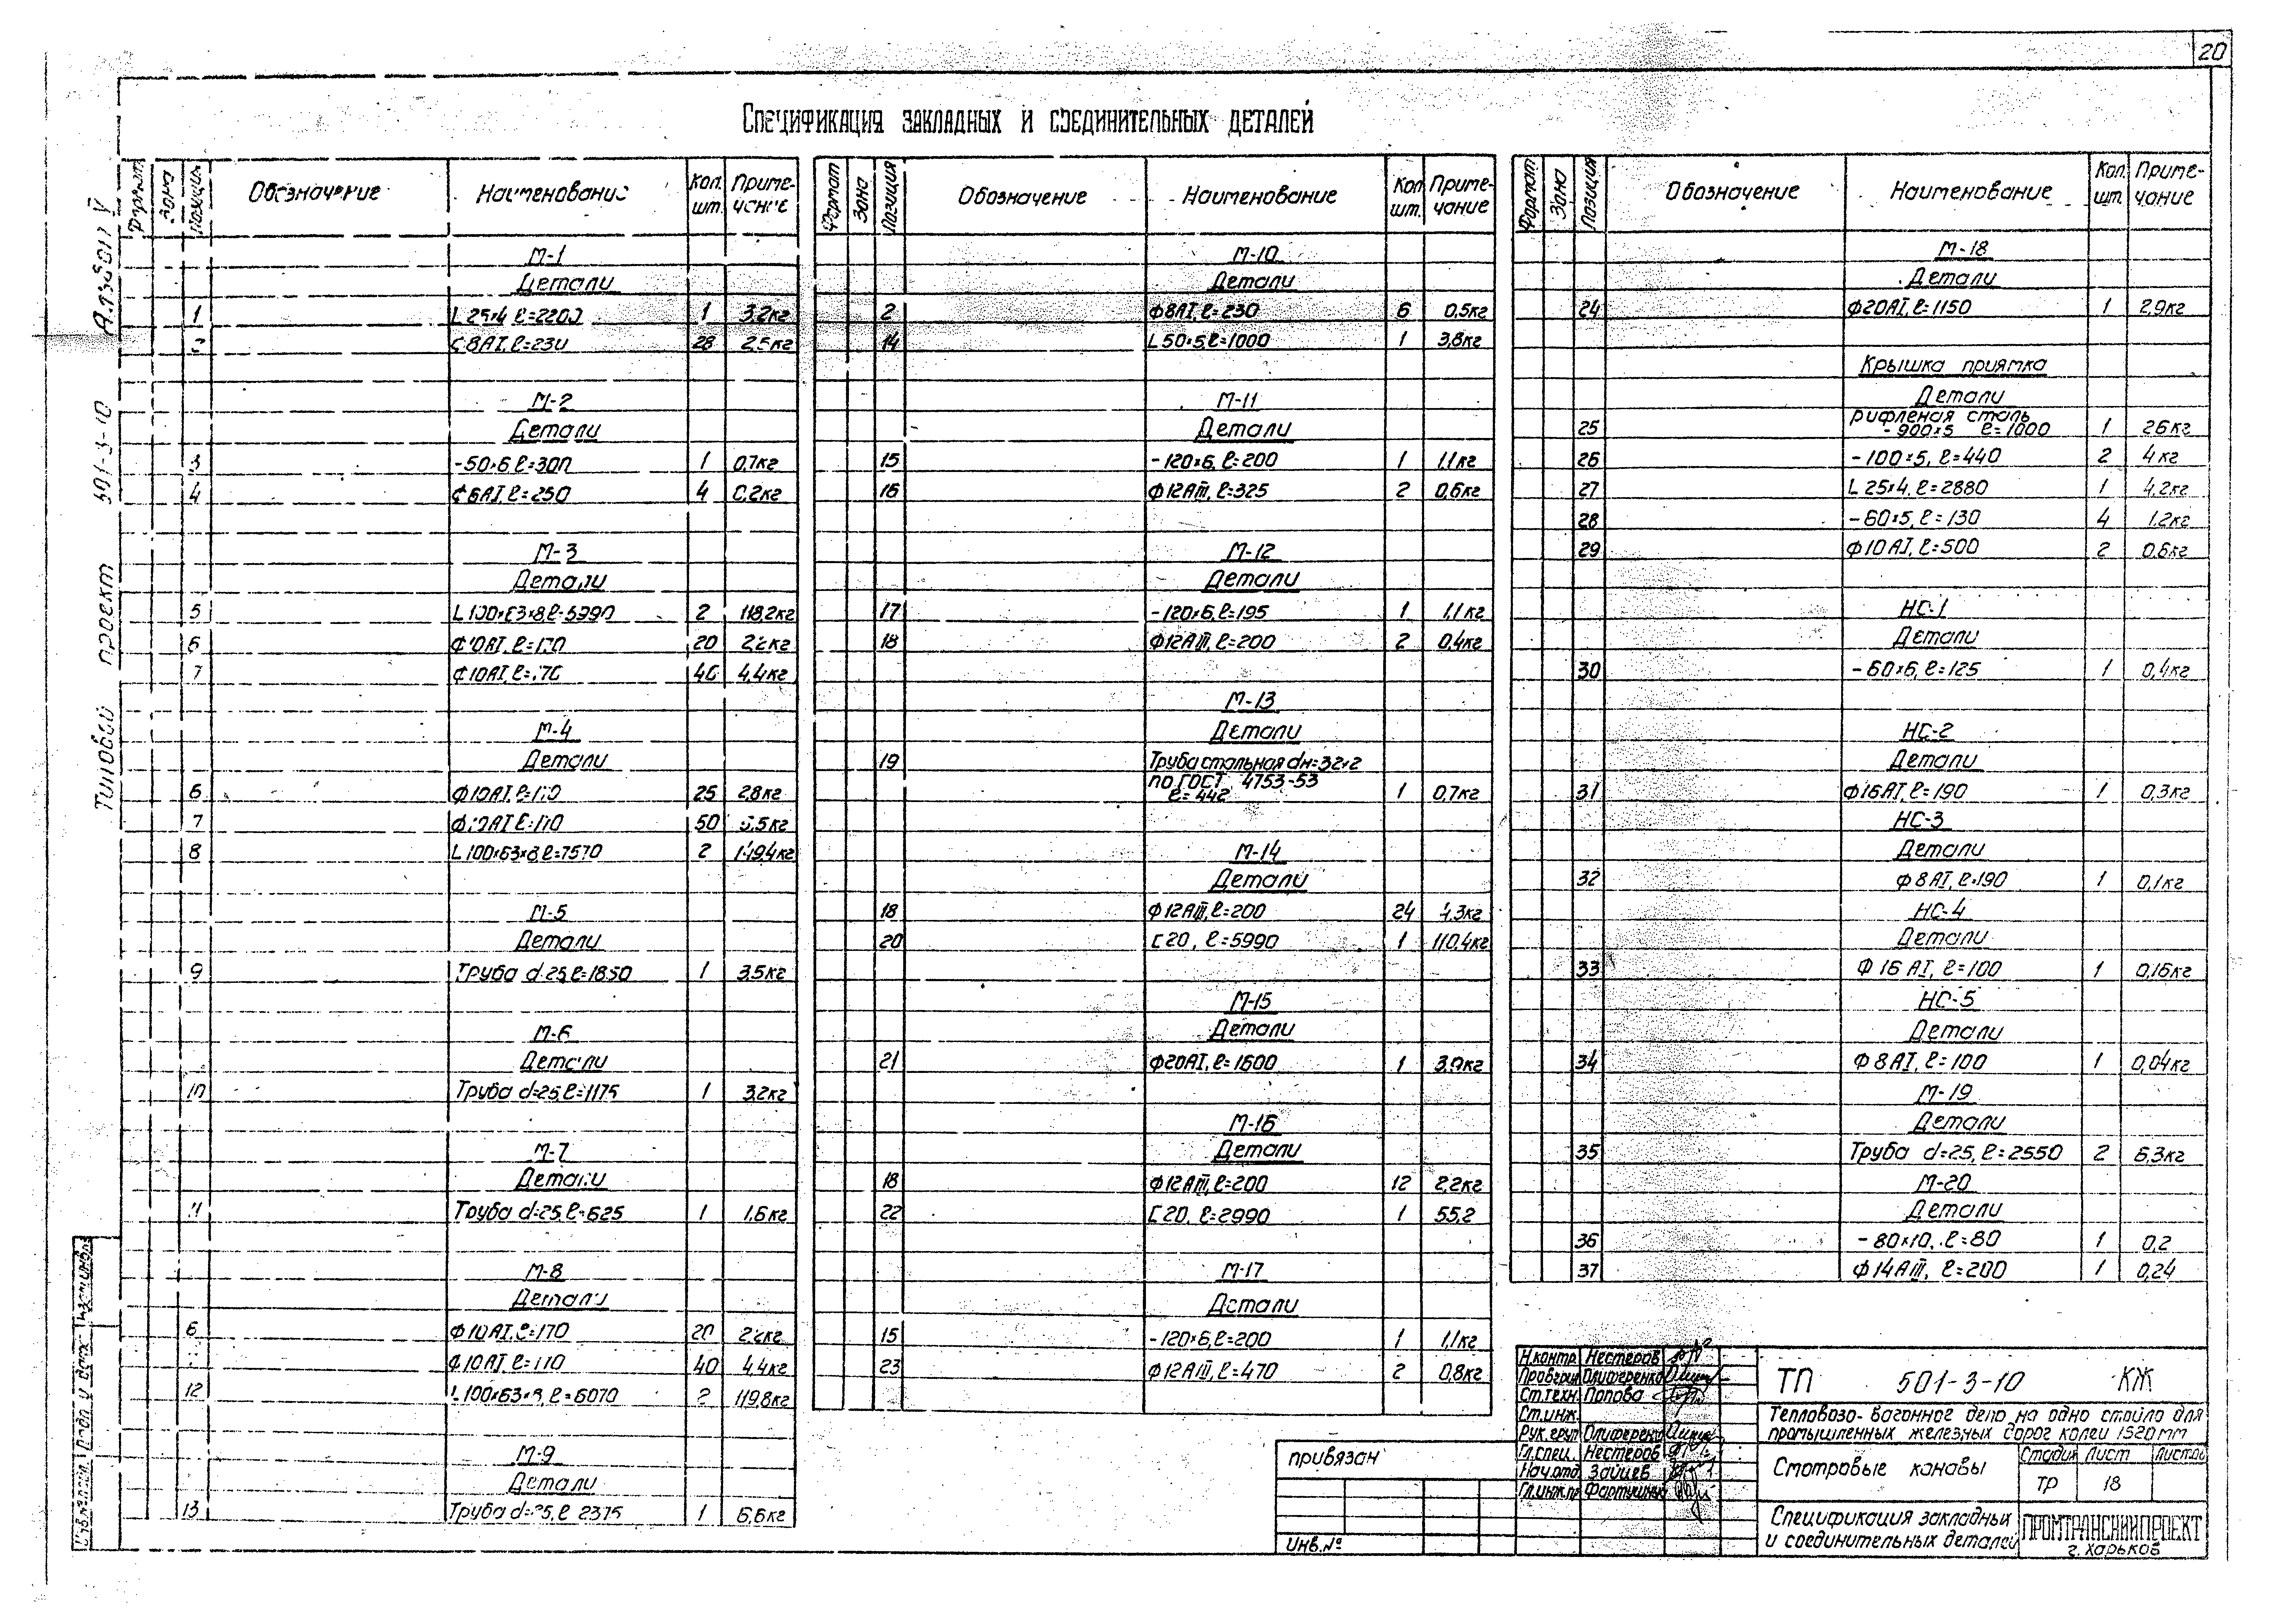 20
Спецификация закладных и соединительных деталей
Альбом V
Типовой проект 501-3-10
Формат Зона Позиция Обозначение Наименование Кол. шт. Приме-чание
М-1
Детали
1 L 25×4 ℓ=2200 1 3,2кг
2 Ф8АI, ℓ=230 28 2,5кг
М-2
Детали
3 -50×6, ℓ=300 1 0,7кг
4 Ф6АI, ℓ=250 4 0,2кг
М-3
Детали
5 L100×63×8, ℓ=5990 2 118,2кг
6 Ф10АI, ℓ= 20 2,2кг
7 Ф10АI, ℓ= 40 4,4кг
М-4
Детали
6 Ф10АI, ℓ= 25 2,8кг
7 Ф10АI, ℓ=110 50 5,5кг
8 L100×63×8, ℓ=7570 2 149,4кг
М-5
Детали
9 Труба d=25, ℓ=1850 1 3,5кг
М-6
Детали
10 Труба d=25, ℓ=1175 1 3,2кг
М-7
Детали
11 Труба d=25, ℓ=625 1 1,6кг
М-8
Детали
6 Ф10АI, ℓ=170 20 2,2кг
Ф10АI, ℓ=110 40 4,4кг
12 L100×63×8, ℓ=6070 2 119,8кг
М-9
Детали
13 Труба d=25, ℓ=2375 1 6,6кг
Формат Зона Позиция Обозначение Наименование Кол. шт. Приме-чание
М-10
Детали
2 Ф8АI, ℓ=230 6 0,5кг
14 L50×5, ℓ=1000 1 3,8кг
М-11
Детали
15 -120×6, ℓ=200 1 1,1кг
16 Ф12АIII, ℓ=325 2 0,6кг
М-12
Детали
17 -120×6, ℓ=195 1 1,1кг
18 Ф12АIII, ℓ=200 2 0,4кг
М-13
Детали
19 Труба стальная dн=32×2
по ГОСТ 4753-53
ℓ=442 1 0,7кг
М-14
Детали
18 Ф12АIII, ℓ=200 24 4,3кг
20 [20, ℓ=5990 1 110,4кг
М-15
Детали
21 Ф20АI, ℓ=1600 1 3,9кг
М-16
Детали
18 Ф12АIII, ℓ=200 12 2,2кг
22 [20, ℓ=2990 1 55,2
М-17
Детали
15 -120×6, ℓ=200 1 1,1кг
23 Ф12АIII, ℓ=470 2 0,8кг
Формат Зона Позиция Обозначение Наименование Кол. шт. Приме-чание
М-18
Детали
24 Ф20АI, ℓ=1150 1 2,9кг
Крышка приямка
Детали
25 рифленая сталь
-900×5 ℓ=1000 1 26кг
26 -100×5, ℓ=440 2 4кг
27 L 25×4, ℓ=2880 1 4,2кг
28 -60×5, ℓ=130 4 1,2кг
29 Ф10АI, ℓ=500 2 0,6кг
НС-1
Детали
30 -60×6, ℓ=125 1 0,4кг
НС-2
Детали
31 Ф16АI, ℓ=190 1 0,3кг
НС-3
Детали
32 Ф8АI, ℓ=190 1 0,1кг
НС-4
Детали
33 Ф16АI, ℓ=100 1 0,16кг
НС-5
Детали
34 Ф8АI, ℓ=100 1 0,04кг
М-19
Детали
35 Труба d=25, ℓ=2550 2 6,3кг
М-20
Детали
36 -80×10, ℓ=80 1 0,2
37 Ф14АIII, ℓ=200 1 0,24
Н.контр. Нестеров
Проверил Олиференко
Ст.техн. Попова
Ст.инж.
Рук.груп Олиференко
Гл.спец. Нестеров
Нач.отд. Зайцев
Гл.инж.пр
привязан
Инв.№
ТП 501-3-10 КЖ
Тепловозо-вагонное депо на одно стойло для
промышленных железных дорог колеи 1520мм
Смотровые канавы
Стадия Лист Листов
ТР 18
Спецификация закладных
и соединительных деталей
ПРОМТРАНСНИИПРОЕКТ
г. Харьков